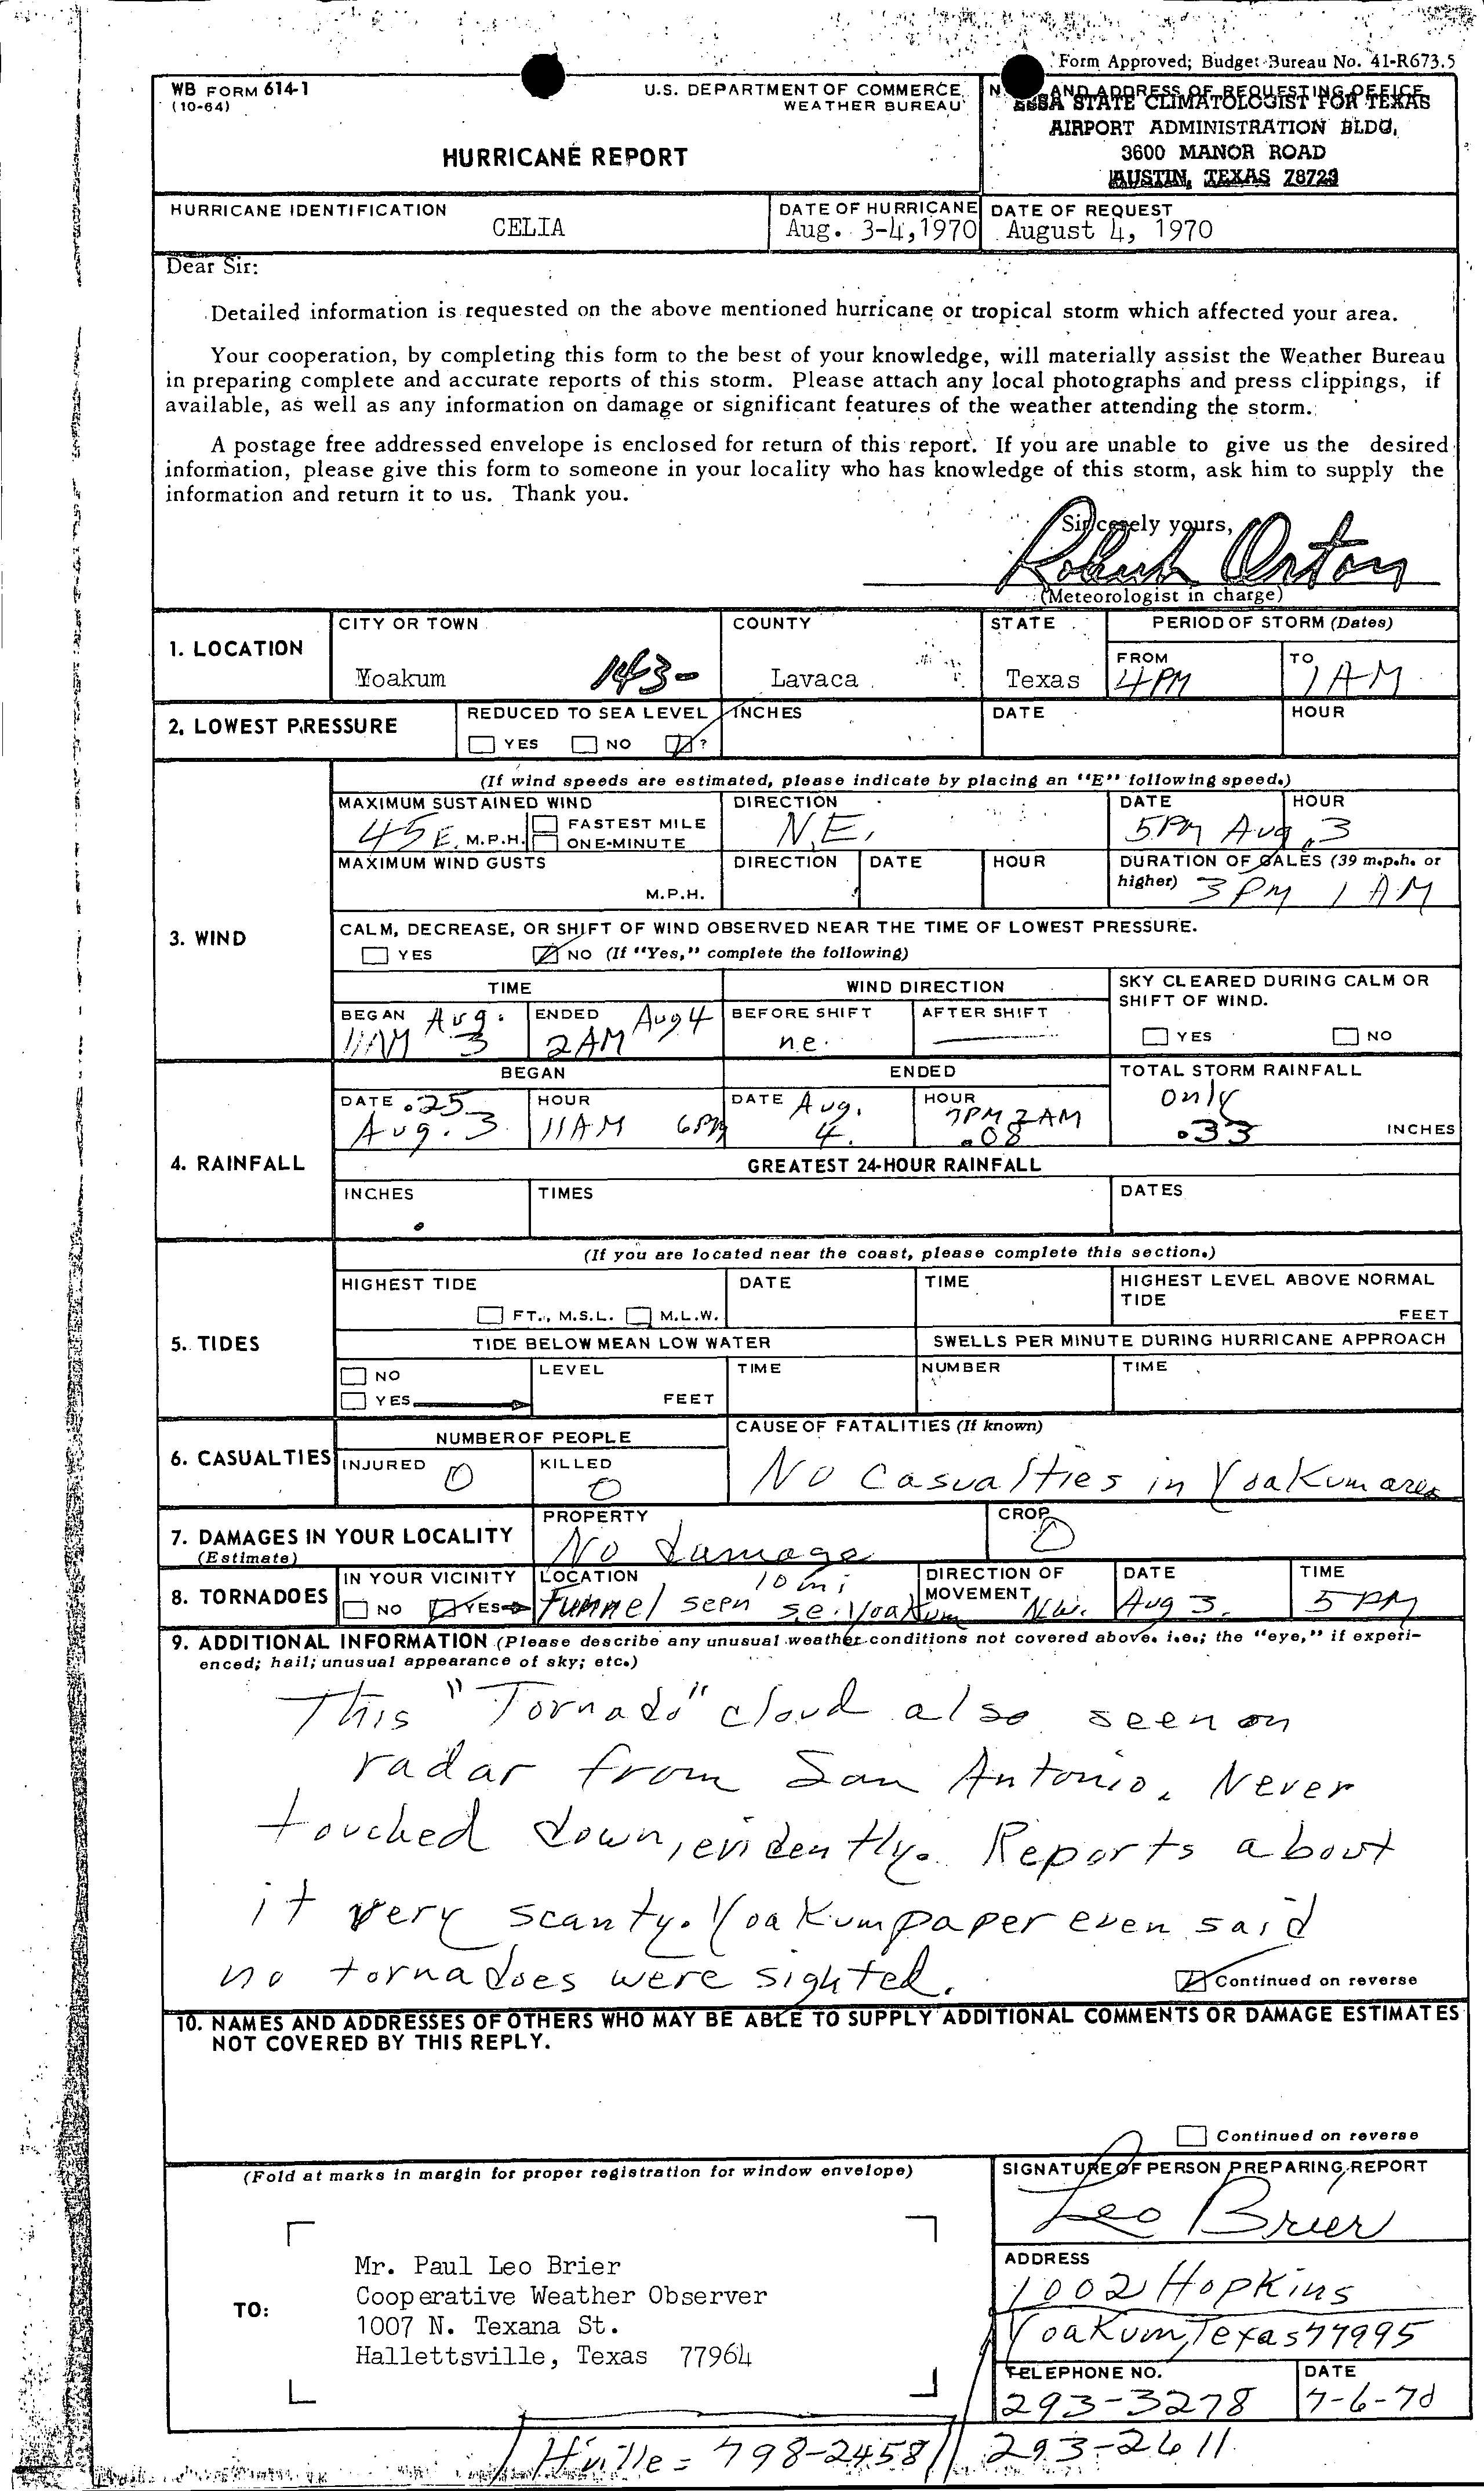 Form Approved; Budget Bureau No. 41-R673.5
WB FORM 614-1
(10-64)
U.S. DEPARTMENT OF COMMERCE
WEATHER BUREAU
HURRICANE REPORT
AND ADDRESS OF REQUESTING OFFICE
ESSA STATE CLIMATOLOGIST FOR TEXAS
AIRPORT ADMINISTRATION BLDG.
3600 MANOR ROAD
AUSTIN, TEXAS 78723
HURRICANE IDENTIFICATION
CELIA
DATE OF HURRICANE
Aug. 3-4,1970
DATE OF REQUEST
August 4, 1970
Dear Sir:
Detailed information is requested on the above mentioned hurricane or tropical storm which affected your area.
Your cooperation, by completing this form to the best of your knowledge, will materially assist the Weather Bureau
in preparing complete and accurate reports of this storm. Please attach any local photographs and press clippings, if
available, as well as any information on damage or significant features of the weather attending the storm.
A postage free addressed envelope is enclosed for return of this report. If you are unable to give us the desired
information, please give this form to someone in your locality who has knowledge of this storm, ask him to supply the
information and return it to us. Thank you.
Sincerely yours,
Robert Orton
(Meteorologist in charge)
1. LOCATION
CITY OR TOWN
Yoakum 143-
COUNTY
Lavaca
STATE
Texas
PERIOD OF STORM (Dates)
FROM
4PM
TO
1AM
2. LOWEST PRESSURE
REDUCED TO SEA LEVEL
YES NO ?
INCHES
DATE
HOUR
3. WIND
(If wind speeds are estimated, please indicate by placing an "E" following speed.)
MAXIMUM SUSTAINED WIND
45 E. M.P.H.
FASTEST MILE
ONE-MINUTE
DIRECTION
N.E.
DATE HOUR
5PM Aug. 3
MAXIMUM WIND GUSTS
M.P.H.
DIRECTION
DATE
HOUR
DURATION OF GALES (39 m.p.h. or
higher) 3 PM 1 AM
CALM, DECREASE, OR SHIFT OF WIND OBSERVED NEAR THE TIME OF LOWEST PRESSURE.
YES NO (If "Yes," complete the following)
TIME
WIND DIRECTION
SKY CLEARED DURING CALM OR
SHIFT OF WIND.
YES NO
BEGAN Aug.
11AM 3
ENDED Aug 4
2AM
BEFORE SHIFT
n.e.
AFTER SHIFT
4. RAINFALL
BEGAN
ENDED
TOTAL STORM RAINFALL
only
.33 INCHES
DATE .25
Aug. 3
HOUR
11AM 6PM
DATE Aug.
4.
HOUR
7PM 2AM
.08
GREATEST 24-HOUR RAINFALL
INCHES
TIMES
DATES
5. TIDES
(If you are located near the coast, please complete this section.)
HIGHEST TIDE
FT., M.S.L. M.L.W.
DATE
TIME
HIGHEST LEVEL ABOVE NORMAL
TIDE
FEET
TIDE BELOW MEAN LOW WATER
SWELLS PER MINUTE DURING HURRICANE APPROACH
NO
YES
LEVEL
FEET
TIME
NUMBER
TIME
6. CASUALTIES
NUMBER OF PEOPLE
INJURED 0
KILLED
0
CAUSE OF FATALITIES (If known)
No casualties in Yoakum area
7. DAMAGES IN YOUR LOCALITY
(Estimate)
PROPERTY
No damage
CROP
0
8. TORNADOES
IN YOUR VICINITY
NO YES
LOCATION 10 mi
Funnel seen s.e. Yoakum
DIRECTION OF
MOVEMENT N.W.
DATE
Aug 3.
TIME
5 PM
9. ADDITIONAL INFORMATION (Please describe any unusual weather conditions not covered above. i.e.; the "eye," if experi-
enced; hail; unusual appearance of sky; etc.)
This "Tornado" cloud also seen on
radar from San Antonio. Never
touched down, evidently. Reports about
it very scanty. Yoakum paper even said
no tornadoes were sighted.
Continued on reverse
10. NAMES AND ADDRESSES OF OTHERS WHO MAY BE ABLE TO SUPPLY ADDITIONAL COMMENTS OR DAMAGE ESTIMATES
NOT COVERED BY THIS REPLY.
Continued on reverse
(Fold at marks in margin for proper registration for window envelope)
TO:
Mr. Paul Leo Brier
Cooperative Weather Observer
1007 N. Texana St.
Hallettsville, Texas 77964
SIGNATURE OF PERSON PREPARING REPORT
Leo Brier
ADDRESS
1002 Hopkins
Yoakum, Texas 77995
TELEPHONE NO.
293-3278
DATE
7-6-70
H'ville = 798-2458 293-2611